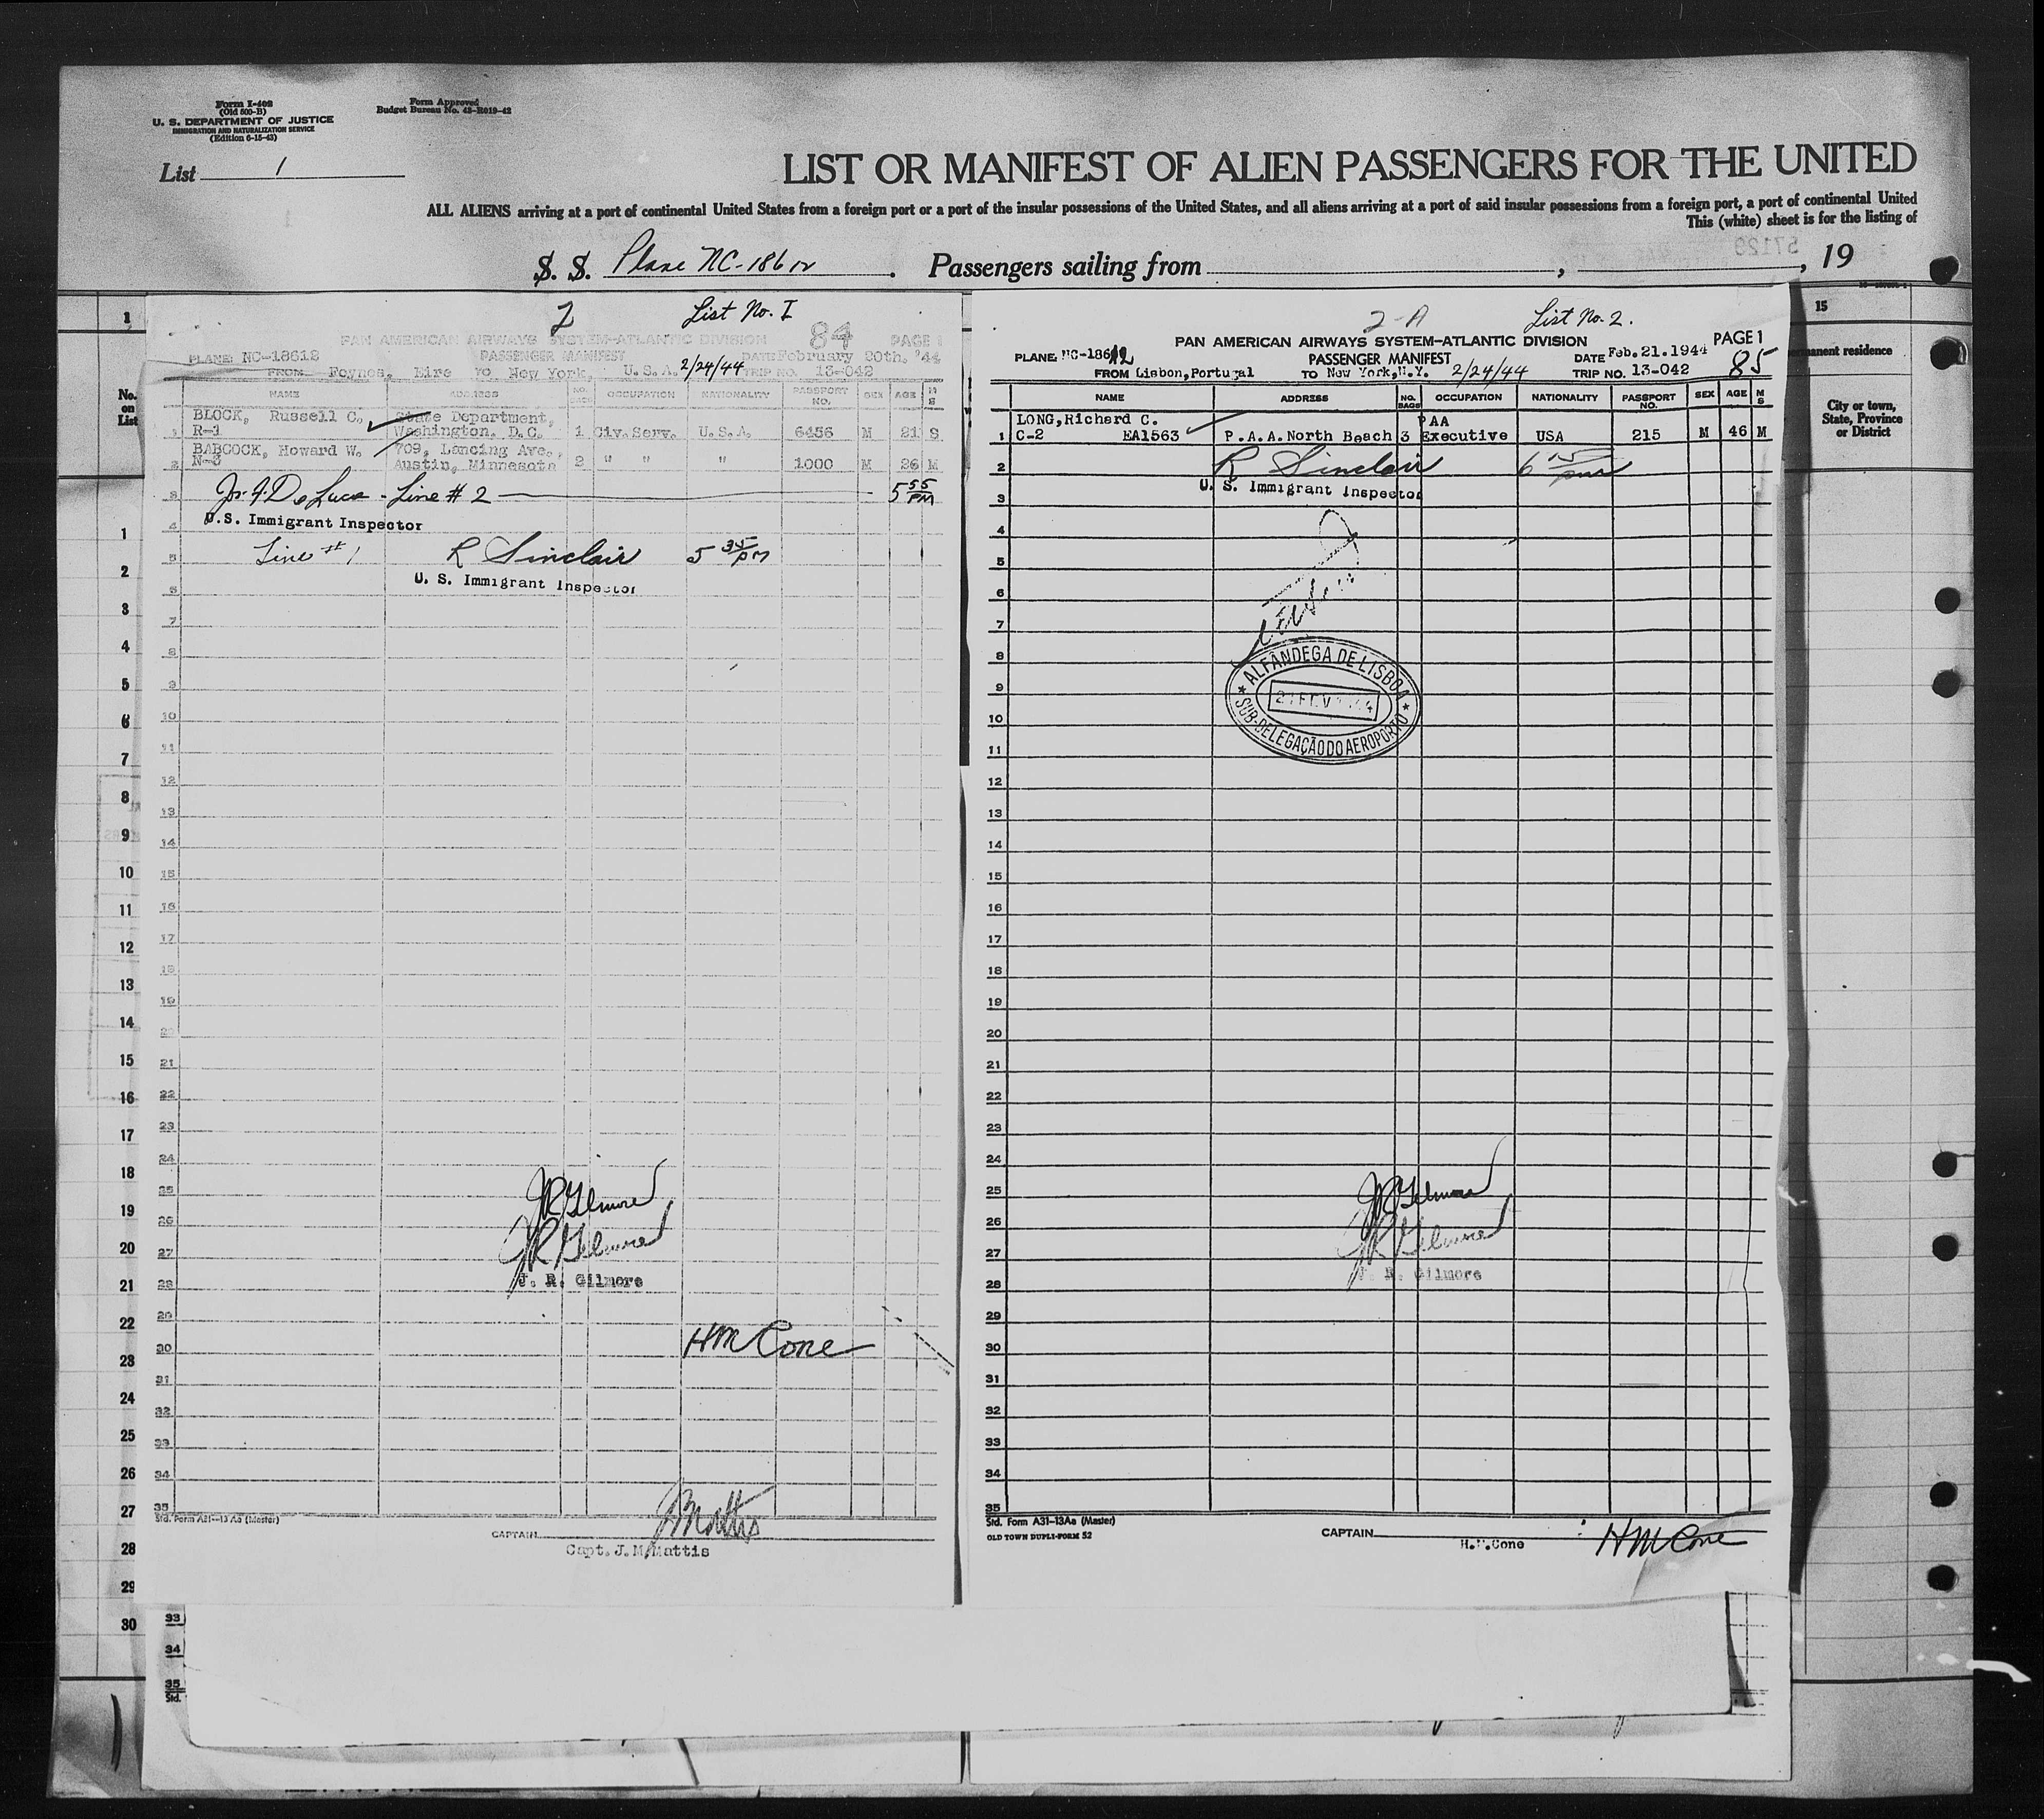 Form I-402
(Old 500-B)
U. S. DEPARTMENT OF JUSTICE
IMMIGRATION AND NATURALIZATION SERVICE
(Edition 6-15-43)
Form Approved
Budget Bureau No. 43-R019-42
List 1
LIST OR MANIFEST OF ALIEN PASSENGERS FOR THE UNITED
ALL ALIENS arriving at a port of continental United States from a foreign port or a port of the insular possessions of the United States, and all aliens arriving at a port of said insular possessions from a foreign port, a port of continental United
This (white) sheet is for the listing of
57129
S. S. Plane NC-18612. Passengers sailing from , , 19
1
No. on List
1
2
3
4
5
6
7
8
9
10
11
12
13
14
15
16
17
18
19
20
21
22
23
24
25
26
27
28
29
30
2 List No. I
PAN AMERICAN AIRWAYS SYSTEM-ATLANTIC DIVISION 84 PAGE 1
PLANE: NC-18612 PASSENGER MANIFEST DATE February 20th. '44
FROM Foynes, Eire TO New York, U.S.A. 2/24/44 TRIP NO. 13-042
NAME ADDRESS NO. BAGS OCCUPATION NATIONALITY PASSPORT NO. SEX AGE M S
BLOCK, Russell C. State Department,
1 R-1 Washington, D.C. 1 Civ.Serv. U.S.A. 6456 M 21 S
BABCOCK, Howard W. 709, Lancing Ave.,
2 N-3 Austin, Minnesota 2 " " " 1000 M 26 M
3 Jr. J. DeLuca - Line # 2 5 55 PM
4 U.S. Immigrant Inspector
5 Line # 1 R Sinclair 5 35 PM
6 U. S. Immigrant Inspector
7
8
9
10
11
12
13
14
15
16
17
18
19
20
21
22
23
24
25 JRGilmore
26
27 JRGilmore
28 J. R. Gilmore
29
30 HM Cone
31
32
33
34
35
Std. Form A31-13Aa (Master)
CAPTAIN JMMattis
Capt. J.M.Mattis
2-A List No. 2.
PAN AMERICAN AIRWAYS SYSTEM-ATLANTIC DIVISION PAGE 1
PLANE: NC-18612 PASSENGER MANIFEST DATE Feb.21.1944
FROM Lisbon,Portugal TO New York,N.Y. 2/24/44 TRIP NO. 13-042 85
NAME ADDRESS NO. BAGS OCCUPATION NATIONALITY PASSPORT NO. SEX AGE M S
LONG,Richard C. PAA
1 C-2 EA1563 P.A.A.North Beach 3 Executive USA 215 M 46 M
2 R Sinclair 6 15 pm
3 U. S. Immigrant Inspector
4
5
6
7
8
9
10
11
12
13
14
15
16
17
18
19
20
21
22
23
24
25
26
27
28
29
30
31
32
33
34
35
ALFÂNDEGA DE LISBOA
21 FEV 1944
SUB-DELEGAÇÃO DO AEROPORTO
JRGilmore
JRGilmore
J. R. Gilmore
Std. Form A31-13Aa (Master)
OLD TOWN DUPLI-FORM 52
CAPTAIN HM Cone
H.M.Cone
15
permanent residence
City or town, State, Province or District
33
34
35
Std.